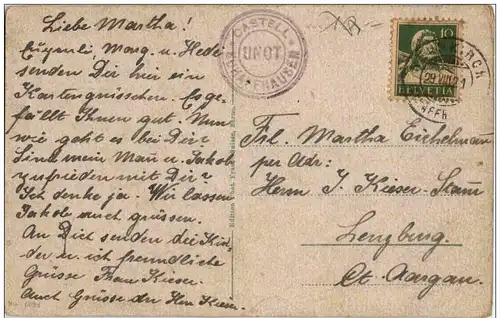 Liebe Martha!
Eugenli, Marg. u. Hedi
senden Dir hier ein
Kartengrüsschen. Es ge-
fällt Ihnen gut. Nun
wie geht es bei Dir?
Sind mein Mann u. Jakob
zufrieden mit Dir?
Ich denke ja. Wir lassen
Jakob auch grüssen.
An Dich senden die Kin-
der u. ich freundliche
Grüsse Frau Kieser.
Auch Grüsse an Herr Kieser.
CASTELL
UNOT
SCHAFFHAUSEN
10
HELVETIA
Frl. Martha Eichelmann
per Adr:
Herrn J. Kieser-Stam
Lenzburg
Ct. Aargau.